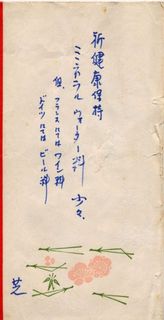 祈健康保持
ミネラルウォーター料 少々、
但、フランスにてはワイン料
ドイツにてはビール料
芝